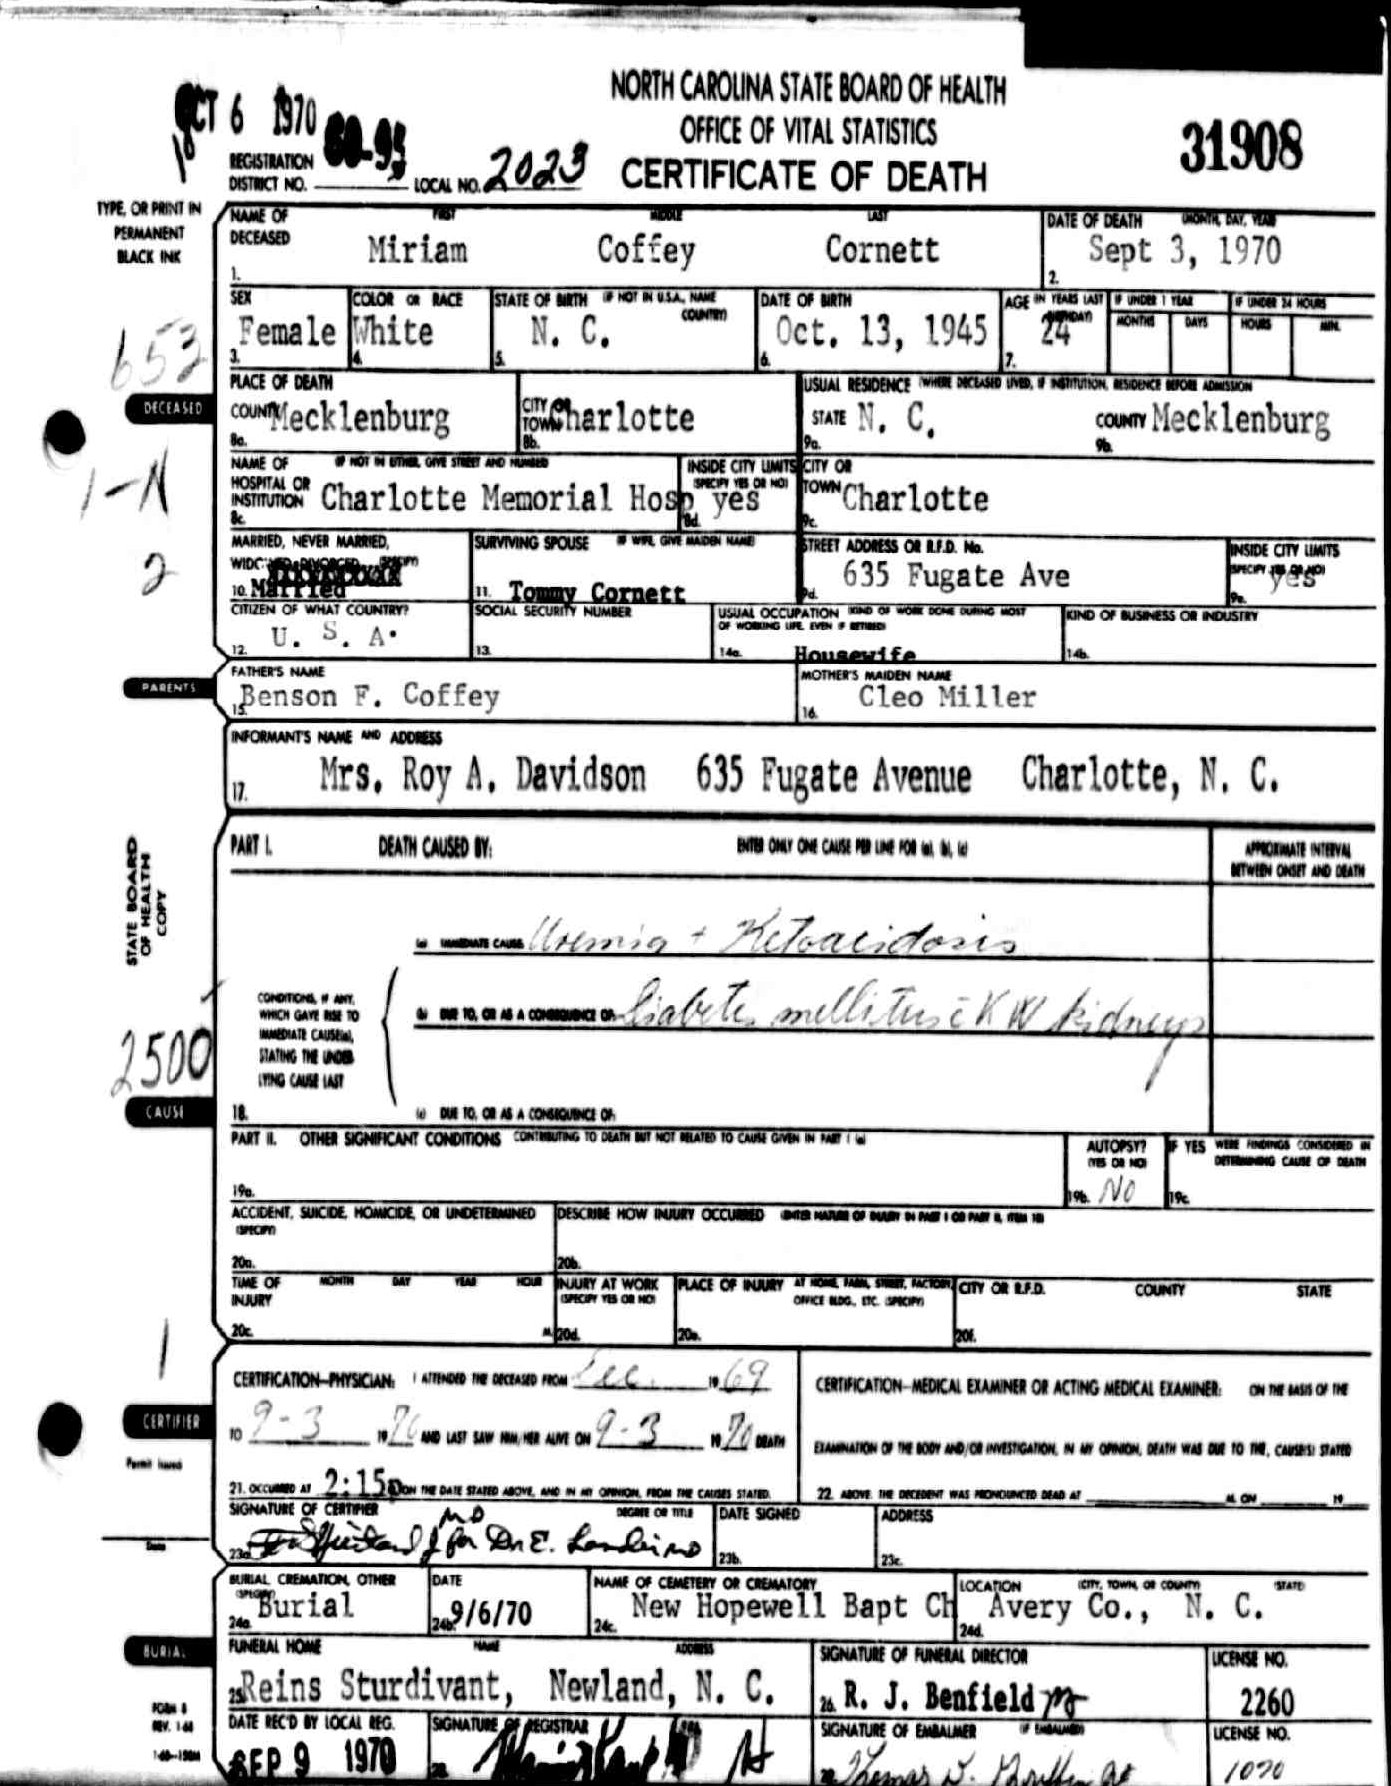 NORTH CAROLINA STATE BOARD OF HEALTH
OFFICE OF VITAL STATISTICS
CERTIFICATE OF DEATH
31908
OCT 6 1970
18
REGISTRATION DISTRICT NO. 60-95 LOCAL NO. 2023
TYPE, OR PRINT IN
PERMANENT
BLACK INK
NAME OF DECEASED FIRST MIDDLE LAST DATE OF DEATH (MONTH, DAY, YEAR)
1. Miriam Coffey Cornett 2. Sept 3, 1970
SEX COLOR OR RACE STATE OF BIRTH (IF NOT IN U.S.A., NAME COUNTRY) DATE OF BIRTH AGE (IN YEARS LAST BIRTHDAY) IF UNDER 1 YEAR IF UNDER 24 HOURS
MONTHS DAYS HOURS MIN.
3. Female 4. White 5. N. C. 6. Oct. 13, 1945 7. 24
653
DECEASED
PLACE OF DEATH USUAL RESIDENCE (WHERE DECEASED LIVED, IF INSTITUTION, RESIDENCE BEFORE ADMISSION)
8a. COUNTY Mecklenburg 8b. CITY OR TOWN Charlotte 9a. STATE N. C. 9b. COUNTY Mecklenburg
1-N
NAME OF HOSPITAL OR INSTITUTION (IF NOT IN EITHER, GIVE STREET AND NUMBER) INSIDE CITY LIMITS (SPECIFY YES OR NO) CITY OR TOWN
8c. Charlotte Memorial Hosp 8d. yes 9c. Charlotte
2
MARRIED, NEVER MARRIED, WIDOWED, DIVORCED (SPECIFY) SURVIVING SPOUSE (IF WIFE, GIVE MAIDEN NAME) STREET ADDRESS OR R.F.D. No. INSIDE CITY LIMITS (SPECIFY YES OR NO)
10. Married 11. Tommy Cornett 9d. 635 Fugate Ave 9e. yes
CITIZEN OF WHAT COUNTRY? SOCIAL SECURITY NUMBER USUAL OCCUPATION (KIND OF WORK DONE DURING MOST OF WORKING LIFE, EVEN IF RETIRED) KIND OF BUSINESS OR INDUSTRY
12. U. S. A. 13. 14a. Housewife 14b.
PARENTS
FATHER'S NAME MOTHER'S MAIDEN NAME
15. Benson F. Coffey 16. Cleo Miller
INFORMANT'S NAME AND ADDRESS
17. Mrs. Roy A. Davidson 635 Fugate Avenue Charlotte, N. C.
STATE BOARD
OF HEALTH
COPY
PART I. DEATH CAUSED BY: ENTER ONLY ONE CAUSE PER LINE FOR (a), (b), (c) APPROXIMATE INTERVAL BETWEEN ONSET AND DEATH
(a) IMMEDIATE CAUSE Uremia + Ketoacidosis
CONDITIONS, IF ANY,
WHICH GAVE RISE TO
IMMEDIATE CAUSE(a),
STATING THE UNDER
LYING CAUSE LAST
(b) DUE TO, OR AS A CONSEQUENCE OF: Diabetes mellitus c̄ K W kidneys
2500
CAUSE
18. (c) DUE TO, OR AS A CONSEQUENCE OF:
PART II. OTHER SIGNIFICANT CONDITIONS CONTRIBUTING TO DEATH BUT NOT RELATED TO CAUSE GIVEN IN PART I (a) AUTOPSY? (YES OR NO) IF YES WERE FINDINGS CONSIDERED IN DETERMINING CAUSE OF DEATH
19a. 19b. NO 19c.
ACCIDENT, SUICIDE, HOMICIDE, OR UNDETERMINED (SPECIFY) DESCRIBE HOW INJURY OCCURRED (ENTER NATURE OF INJURY IN PART I OR PART II, ITEM 18)
20a. 20b.
TIME OF INJURY MONTH DAY YEAR HOUR INJURY AT WORK (SPECIFY YES OR NO) PLACE OF INJURY AT HOME, FARM, STREET, FACTORY, OFFICE BLDG., ETC. (SPECIFY) CITY OR R.F.D. COUNTY STATE
20c. M. 20d. 20e. 20f.
1
CERTIFICATION-PHYSICIAN: I ATTENDED THE DECEASED FROM Dec. 19 69
CERTIFIER
TO 9-3 19 70 AND LAST SAW HIM/HER ALIVE ON 9-3 19 70 DEATH
21. OCCURRED AT 2:15p ON THE DATE STATED ABOVE, AND IN MY OPINION, FROM THE CAUSES STATED.
CERTIFICATION-MEDICAL EXAMINER OR ACTING MEDICAL EXAMINER: ON THE BASIS OF THE
EXAMINATION OF THE BODY AND/OR INVESTIGATION, IN MY OPINION, DEATH WAS DUE TO THE, CAUSE(S) STATED
22. ABOVE. THE DECEDENT WAS PRONOUNCED DEAD AT M. ON 19
Permit Issued
Date
SIGNATURE OF CERTIFIER DEGREE OR TITLE DATE SIGNED ADDRESS
23a. MD for Dr E. 23b. 23c.
BURIAL, CREMATION, OTHER (SPECIFY) DATE NAME OF CEMETERY OR CREMATORY LOCATION (CITY, TOWN, OR COUNTY) (STATE)
24a. Burial 24b. 9/6/70 24c. New Hopewell Bapt Ch 24d. Avery Co., N. C.
BURIAL
FUNERAL HOME NAME ADDRESS SIGNATURE OF FUNERAL DIRECTOR LICENSE NO.
25. Reins Sturdivant, Newland, N. C. 26. R. J. Benfield 2260
FORM 8
REV. 1-68
DATE REC'D BY LOCAL REG. SIGNATURE OF REGISTRAR SIGNATURE OF EMBALMER (IF EMBALMED) LICENSE NO.
SEP 9 1970 28. Thomas 1070